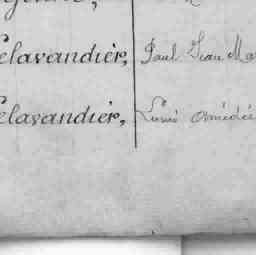 elavandièr, Paul Jean Ma
elavandièr, Louis Amédée